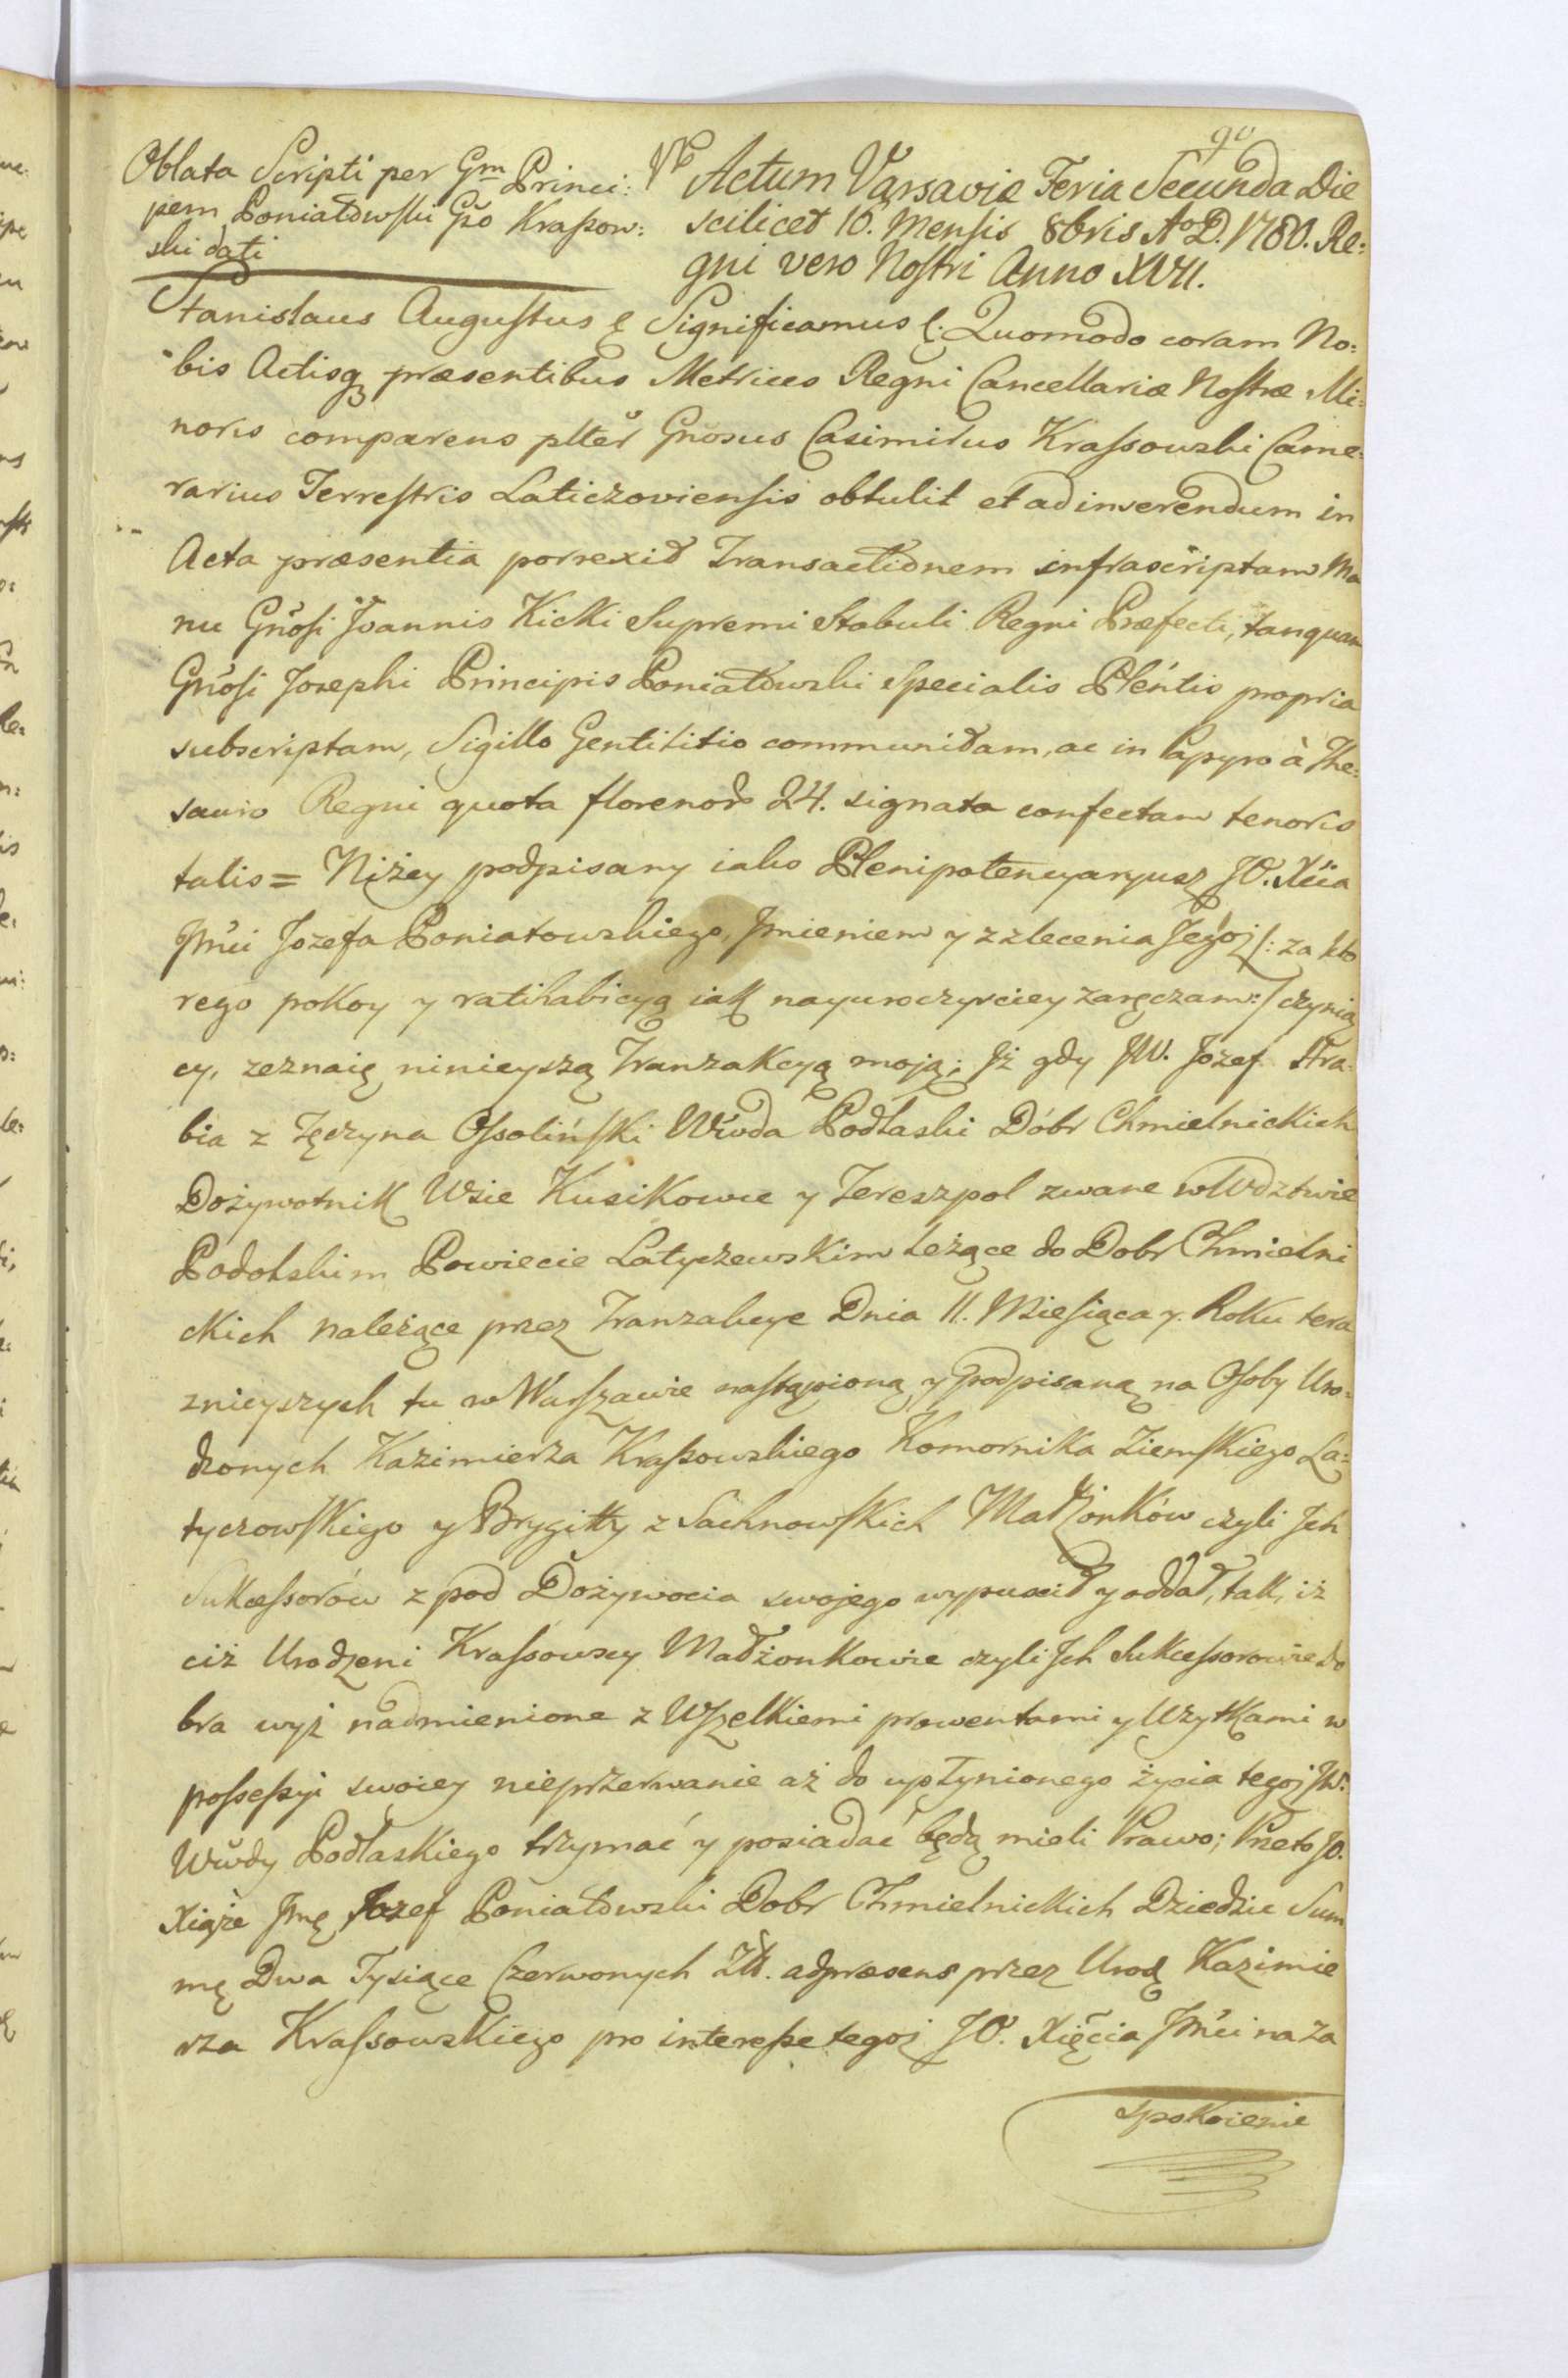 90
Oblata Scripti per Gm̃ Princi:
pem Poniatowski Gso Kraßow:
ski dati
Actum Varsaviæ Feria Secunda Die
scilicet 16. Mensis 8bris Ao D. 1780. Re:
gni vero Nostri Anno XVII.
Stanislaus Augustus & Significamus &. Quomodo coram No:
bis Actisq præsentibus Metrices Regni Cancellariæ Nostræ Mi:
noris comparens plter Gnosus Casimirus Krassowski Came:
rarius Terrestris Laticzoviensis obtulit et ad inserendum in
Acta præsentia porrexit Transactionem infrascriptam Ma
nu Gnosi Joannis Kicki Supremi Stabuli Regni Præfecti, tanquam
Gnosi Josephi Principis Poniatowski Specialis Plentis propria
subscriptam, Sigillo Gentilitio communitam, ac in Papyro à The:
sauro Regni quota florenor 24. signata confectam tenoris
talis = Niżey podpisany iako Plenipotencyaryusz JO. Xcia
Jmci Jozefa Poniatowskiego, Jmieniem y z zlecenia Jegoż /: za kto
rego pokoy y ratihabicyą iak nayuroczyściey zaręczam :/ czynią
cy, zeznaię ninieyszą Tranzakcyą moją; Jż gdy JW. Jozef Hra:
bia z Tęczyna Ossoliński Wwda Podlaski Dóbr Chmielnickich
Dożywotnik Wsie Kusikowce y Tereszpol zwane w Wdztwie
Podolskim Powiecie Latyczewskim leżące do Dobr Chmielni
ckich należące przez Tranzakcye Dnia 11. Miesiąca y. Roku tera
znieyszych tu w Warszawie nastąpioną y podpisaną na Osoby Uro:
dzonych Kazimierza Kraßowskiego Komornika Ziemskiego La:
tyczowskiego y Brygitty z Sachnowskich Małżonków czyli Jch
Sukcessorów z pod Dożywocia swojego wypuscił y oddał, tak, iż
ciż Urodzeni Krassowscy Małżonkowie czyli Jch Sukcessorowie do
bra wyż nadmienione z Wszelkiemi prowentami y Użytkami w
posseßyi swoiey nieprzerwanie aż do upłynionego życia tegoż JW.
Wwdy Podlaskiego trzymać y posiadać będą mieli Prawo; Przeto JO.
Xiąże Jmę Jozef Poniatowski Dobr Chmielnickich Dziedzic Sum
mę Dwa Tysiące Czerwonych Zł. adpræsens przez Urodz Kazimie
rza Krassowskiego pro intereße tegoż JO. Xięcia Jmci na za
spokoienie